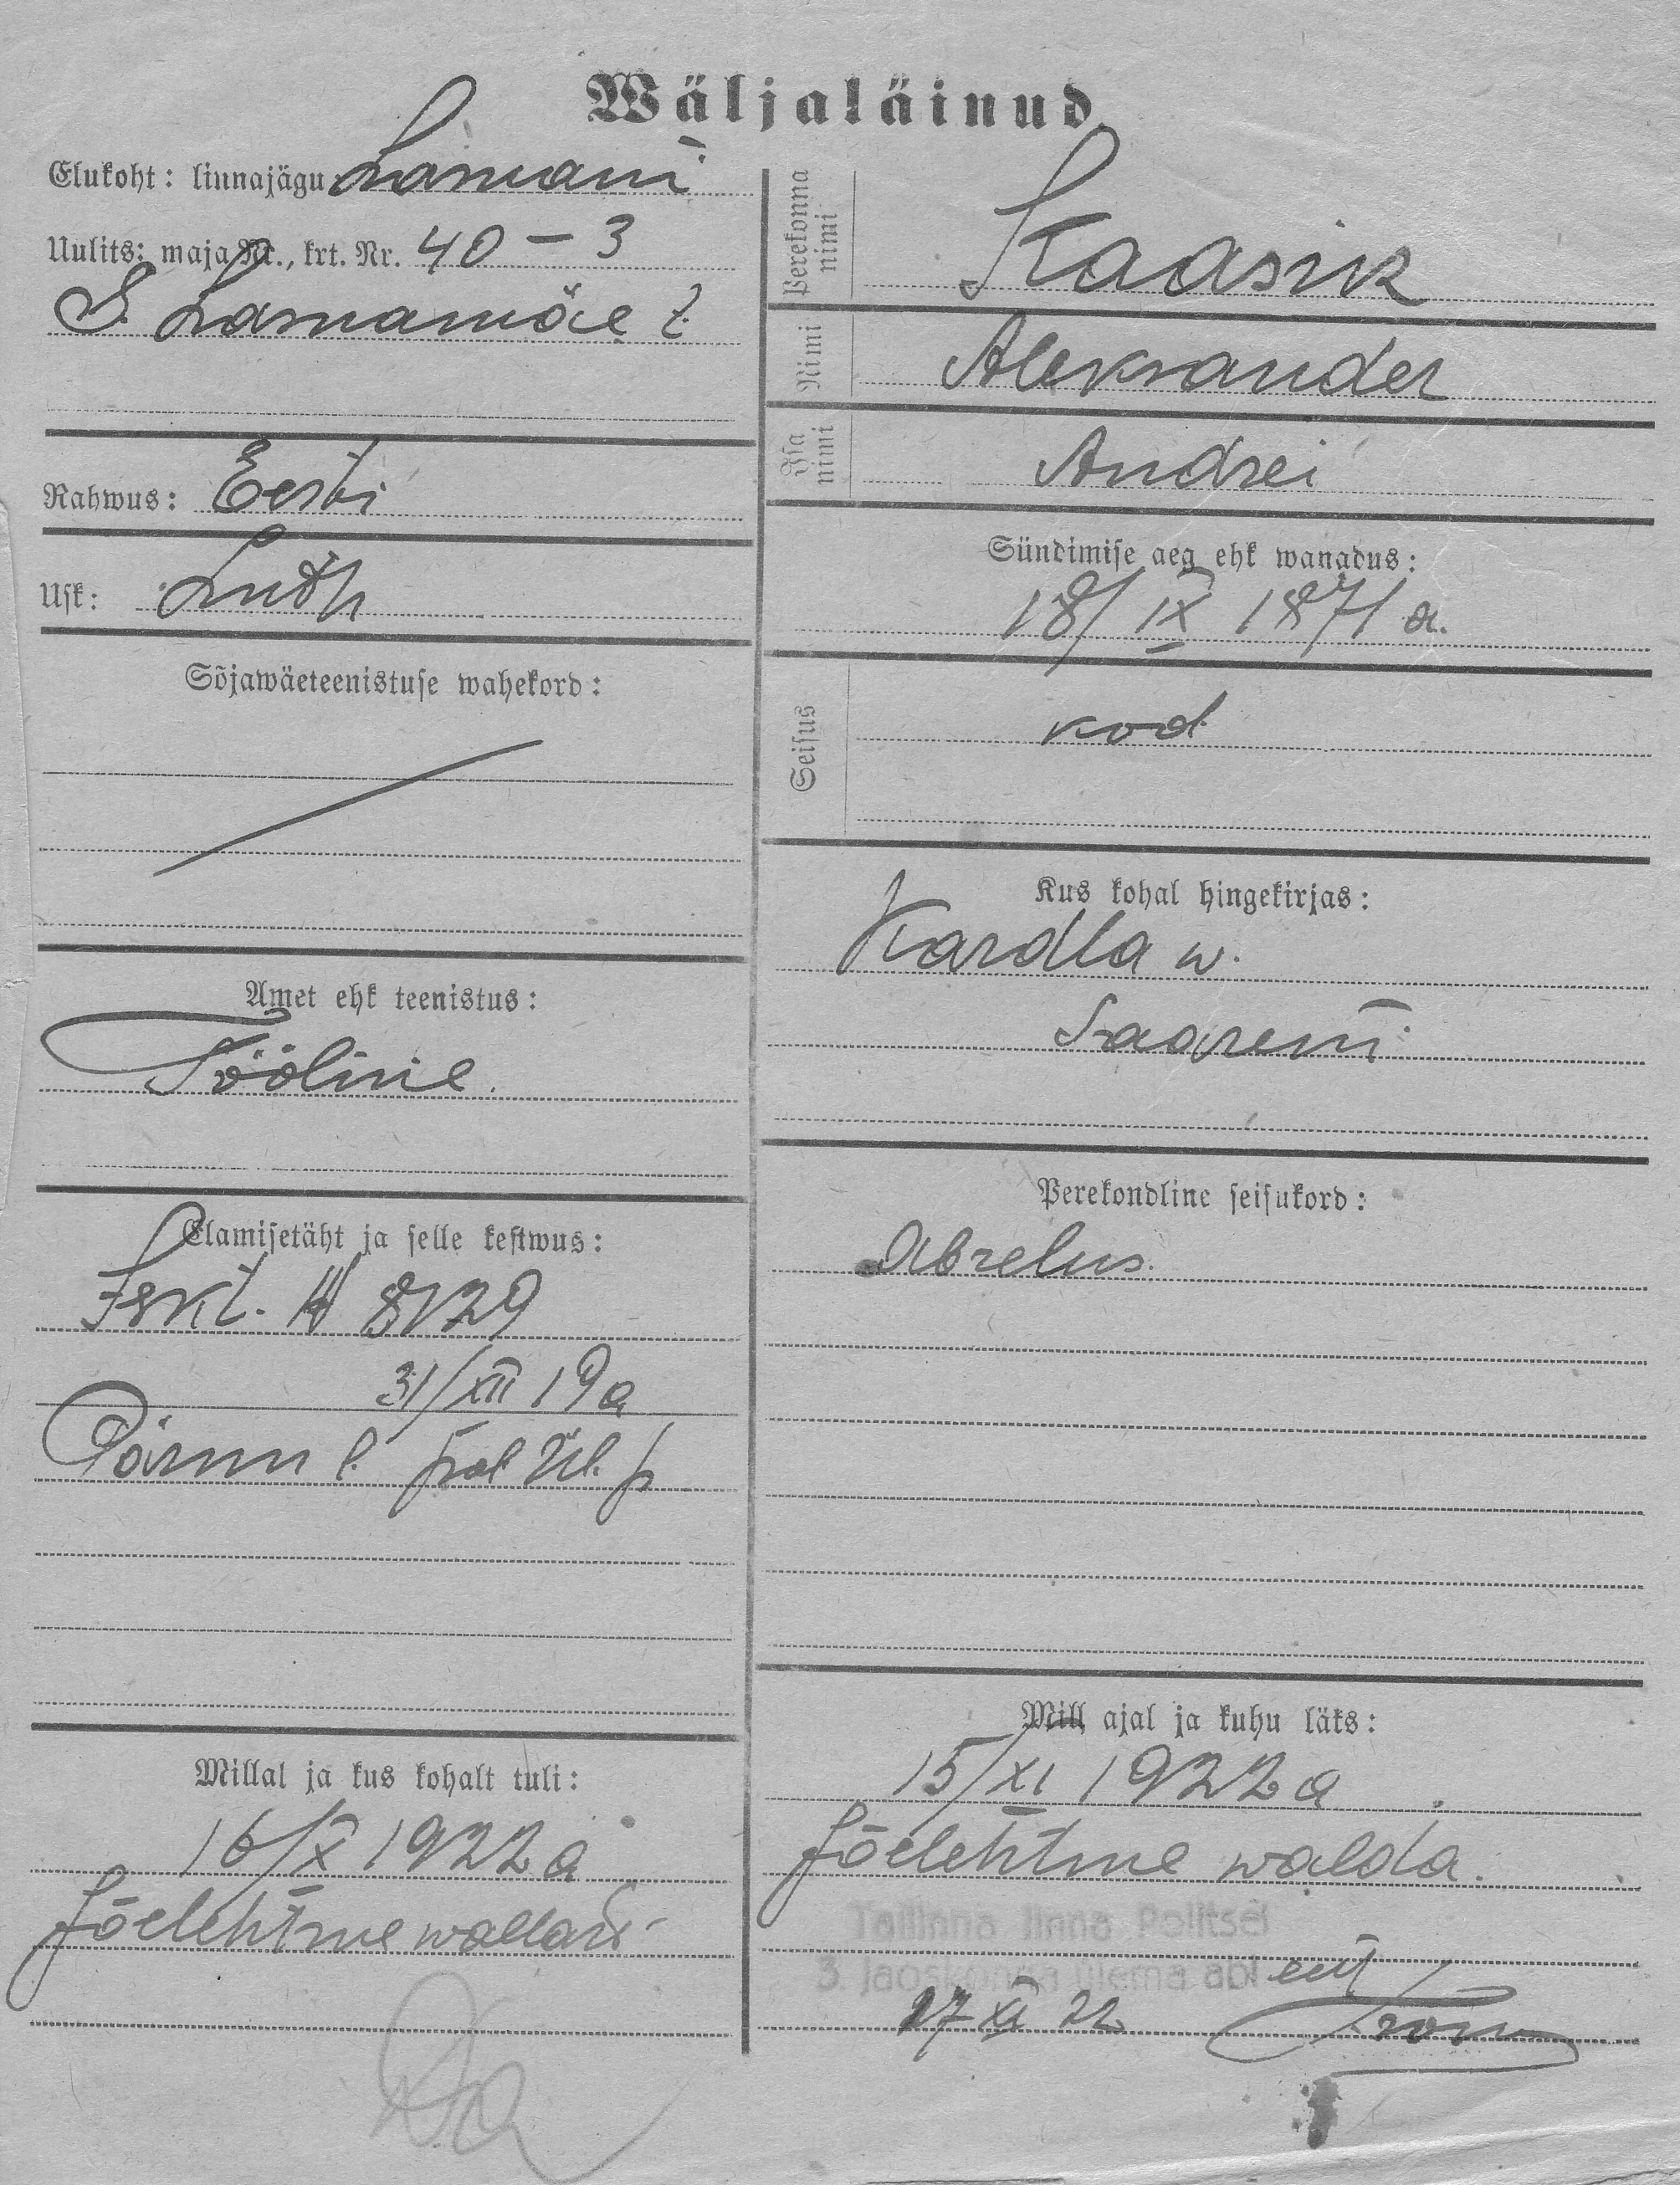 Wäljaläinud.
Elukoht: linnajägu Lasnami
Uulits: maja Nr., krt. Nr. 40 – 3
S. Lasnamäe t.
Rahwus: Eesti
Usk: Luth
Sõjawäeteenistuse wahekord:
Amet ehk teenistus:
Tööline.
Elamisetäht ja selle kestwus:
Iskt. № 8129
31/XII 19 a
Pärnu l. pol. Ül. p
Millal ja kus kohalt tuli:
16/X 1922 a
Jõelehtme wallast
Perekonna nimi
Kaasik
Nimi
Aleksander
Isa nimi
Andrei
Sündimise aeg ehk wanadus:
18/IX 1871 a.
Seisus
kod.
Kus kohal hingekirjas:
Kardla w.
Saarem:
Perekondline seisukord:
Abielus.
Mill ajal ja kuhu läks:
15/XI 1922 a.
Jõelehtme walda.
Tallinna linna Politsei
3. jaoskonna ülema abi
27 XI 22